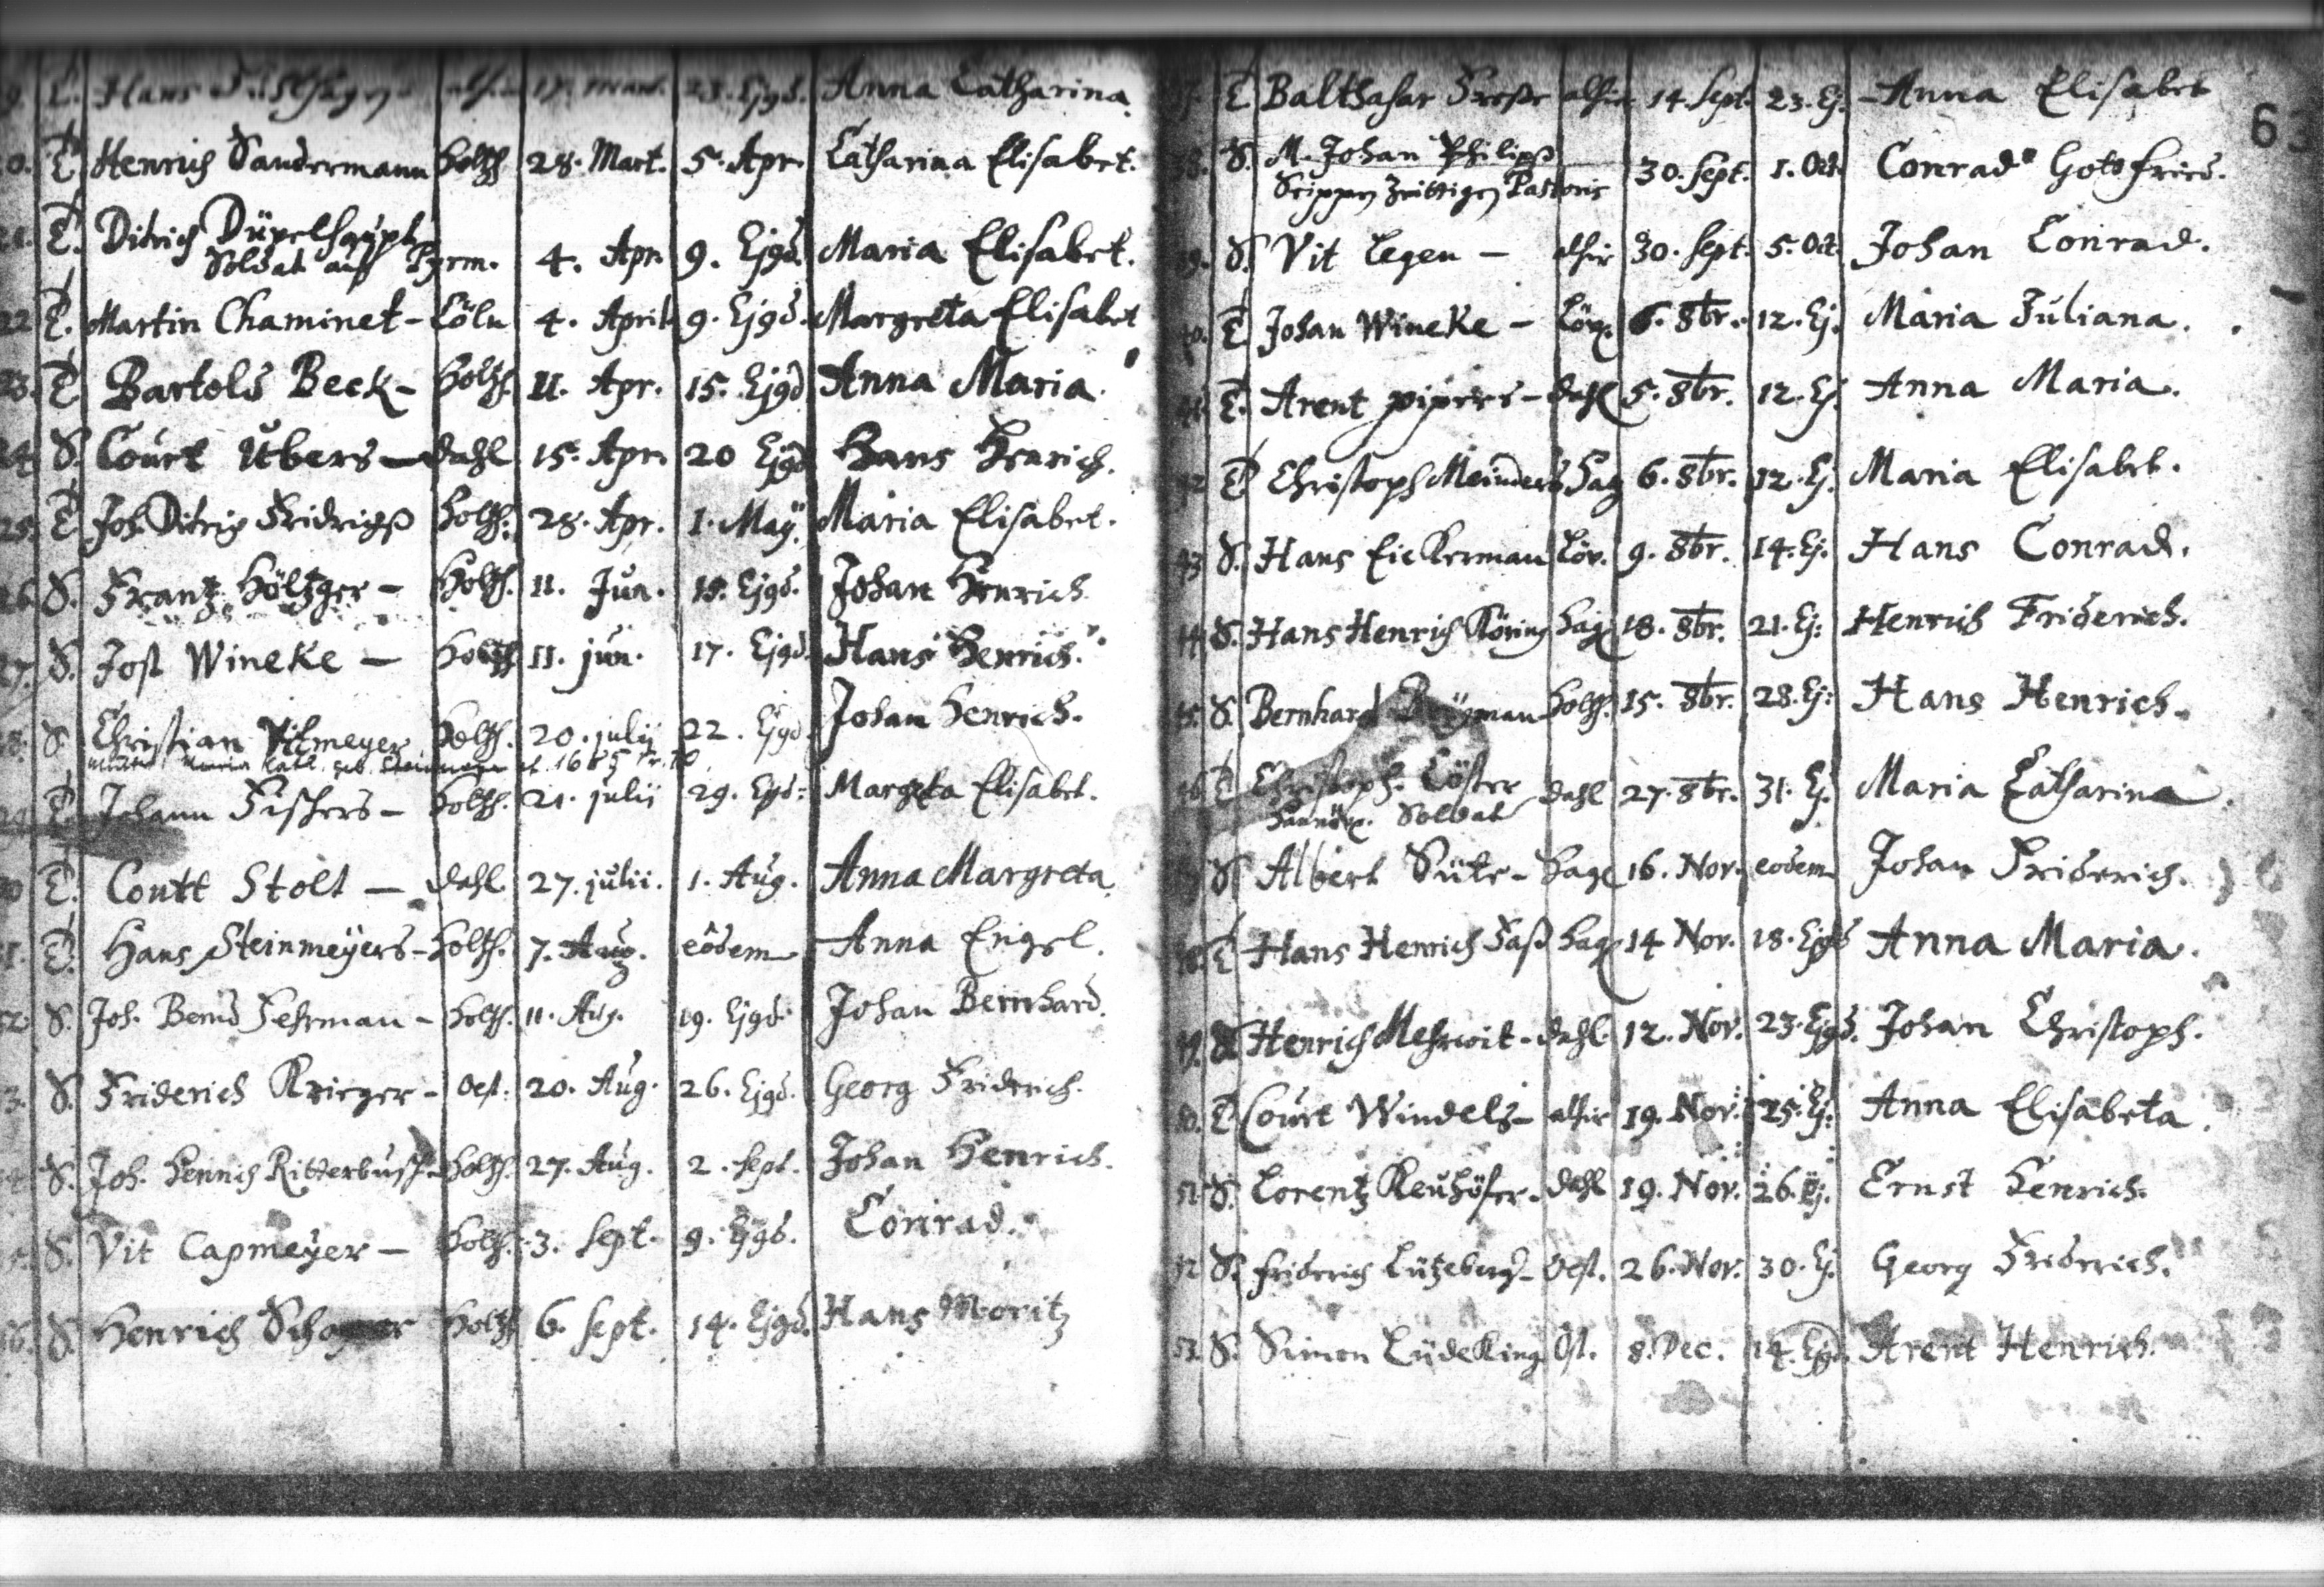 Hans 17. 23. Ejgd. Anna Catharina
T. Henrich Sandermann Holtzh. 28. Mart. 5. Apr. Catharina Elisabet.
T. Ditrich
Soldat auß Pyrm. 4. Apr. 9. Ejgd. Maria Elisabet.
22 T. Martin Chaminet - Cöln 4. April 9. Ejgd. Margreta Elisabet
23. T. Bartold Beck - Holtzh. 11. Apr. 15. Ejgd Anna Maria.
24 S. Court Übers - Dahl 15. Apr. 20 Ejgd Hans Henrich.
25. T Joh. Ditrig Fridrichß Holtzh. 28. Apr. 1. May. Maria Elisabet.
26. S. Frantz Höltzger - Holtzh. 11. Jun. 15. Ejgd. Johan Henrich
27. S. Jost Wineke - Holtzh 11. jun. 17. Ejgd. Hans Henrich.
S. Christian Vitmeyer Holtzh. 20. julii 22. Ejgd Johan Henrich.
Mutter Maria Kath. geb. 1685
T. Johann Fischers - Holtzh. 21. julii 29. Ejgd. Margreta Elisabet.
30 T. Contt Stolt - Dahl 27. julii. 1. Aug. Anna Margreta
31. T. Hans Steinmeyers - Holtzh. 7. Aug. eodem Anna Engel.
32. S. Joh. Bernd Fehrman - Holtzh. 11. Aug. 19. Ejgd. Johan Bernhard.
3. S. Friderich Krieger - Oest. 20. Aug. 26. Ejgd. Georg Friderich.
S. Joh. Henrich Ritterbusch - Holtzh. 27. Aug. 2. sept. Johan Henrich.
S. Vit Capmeyer - Holtzh. 3. sept. 9. Ejgd. Conrad.
S. Henrich Holtzh 6. sept. 14. Ejgd. Hans Moritz
63
T Balthasar alhir 14. sept. 23. Ej. - Anna Elisabet
S. M. Johan Philipß
Pastoris 30. sept. 1. Oct. Conrad Gottfried.
39. S. Vit Legen - alhir 30. sept. 5. Oct. Johan Conrad.
40. T Johan Wineke - 6. 8br. 12. Ej. Maria Juliana.
41. T. Arent pipers - Dahl 5. 8br. 12. Ej. Anna Maria.
42 T Christoph Meinders Hag 6. 8br. 12. Ej. Maria Elisabet.
43 S. Hans Eickerman Löw. 9. 8br. 14. Ej. Hans Conrad.
44 S. Hans Henrich Köring Hag 18. 8br. 21. Ej: Henrich Friderich.
45. S. Bernhard Holtzh. 15. 8br. 28. Ej: Hans Henrich.
46. T Christoph. Cöster
Hannöv. Soldat Dahl 27. 8br. 31. Ej. Maria Catharina.
S Albert Süte - Hage 16. Nov. eodem Johan Friderich.
48. T Hans Henrich Faß Hag 14 Nov. 18. Ejgd Anna Maria.
49. S Henrich Mehrwit - Dahl 12. Nov. 23. Ejgd. Johan Christoph.
50. T Court Windels - alhir 19. Nov. 25. Ej: Anna Elisabeta.
51. S. Lorentz Keuhöfer - Dahl 19. Nov. 26. Ej. Ernst Henrich.
52 S. friderich Lützeberg - Oest. 26. Nov. 30. Ej. Georg Friderich.
53. S. Simon Lüdeking Ost. 8. Dec. 14. Ejgd. Arent Henrich.